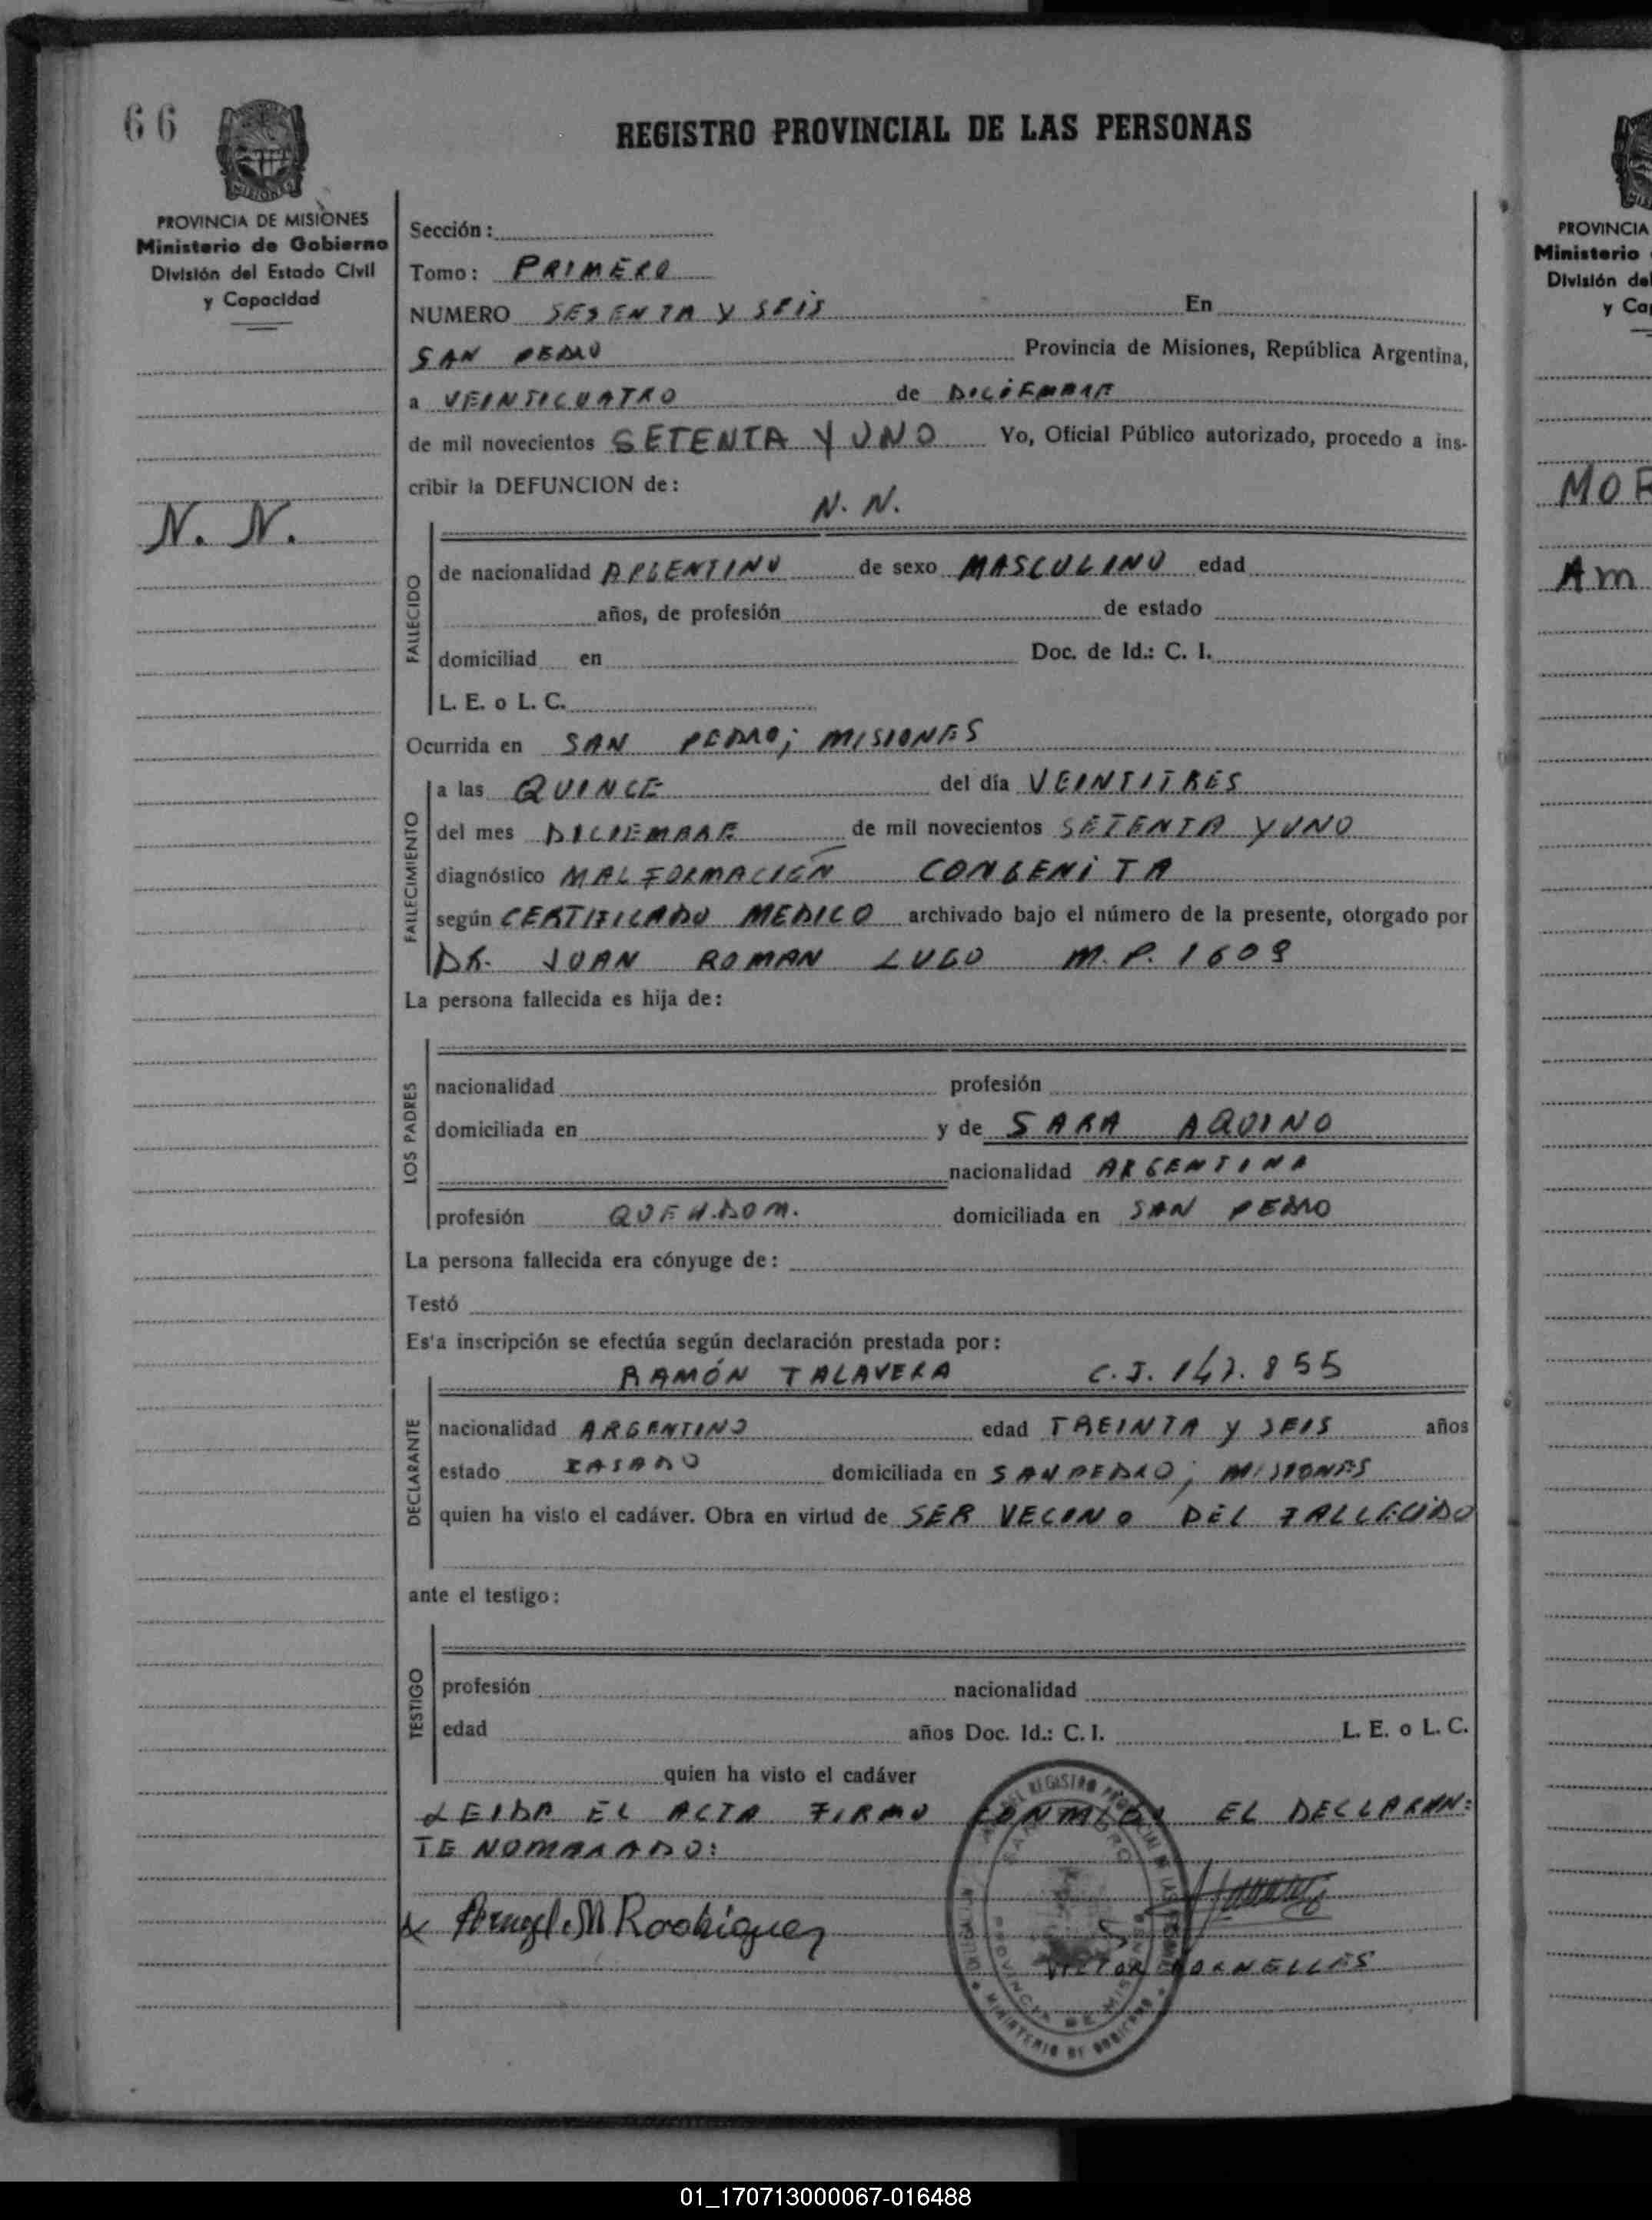 66
REGISTRO PROVINCIAL DE LAS PERSONAS
MISIONES
PROVINCIA DE MISIONES
Ministerio de Gobierno
División del Estado Civil
y Capacidad
N. N.
Sección:
Tomo: PRIMERO
NUMERO SESENTA Y SEIS En
SAN PEDRO Provincia de Misiones, República Argentina,
a VEINTICUATRO de DICIEMBRE
de mil novecientos SETENTA Y UNO Yo, Oficial Público autorizado, procedo a ins-
cribir la DEFUNCION de:
N. N.
FALLECIDO
de nacionalidad ARGENTINO de sexo MASCULINO edad
años, de profesión de estado
domiciliad en Doc. de Id.: C. I.
L. E. o L. C.
Ocurrida en SAN PEDRO; MISIONES
FALLECIMIENTO
a las QUINCE del día VEINTITRES
del mes DICIEMBRE de mil novecientos SETENTA Y UNO
diagnóstico MALFORMACIÓN CONGENITA
según CERTIFICADO MEDICO archivado bajo el número de la presente, otorgado por
DR. JUAN ROMAN LUGO M.P. 1609
La persona fallecida es hija de:
LOS PADRES
nacionalidad profesión
domiciliada en y de SARA AQUINO
nacionalidad ARGENTINA
profesión QUEH.DOM. domiciliada en SAN PEDRO
La persona fallecida era cónyuge de:
Testó
Es'a inscripción se efectúa según declaración prestada por:
RAMÓN TALAVERA C.I. 147.855
DECLARANTE
nacionalidad ARGENTINO edad TREINTA Y SEIS años
estado CASADO domiciliada en SAN PEDRO; MISIONES
quien ha visto el cadáver. Obra en virtud de SER VECINO DEL FALLECIDO
ante el testigo:
TESTIGO
profesión nacionalidad
edad años Doc. Id.: C. I. L. E. o L. C.
quien ha visto el cadáver
LEIDA EL ACTA FIRMO EL DECLARAN:
TE NOMBRADO:
M Rodriguez
VICTOR DORNELLES
REGISTRO PROVINCIAL DE LAS
PROVINCIA DE MISIONES
MINISTERIO DE GOBIERNO
PROVINCIA
Ministerio
División del
y Ca
MOR
Am
01_170713000067-016488